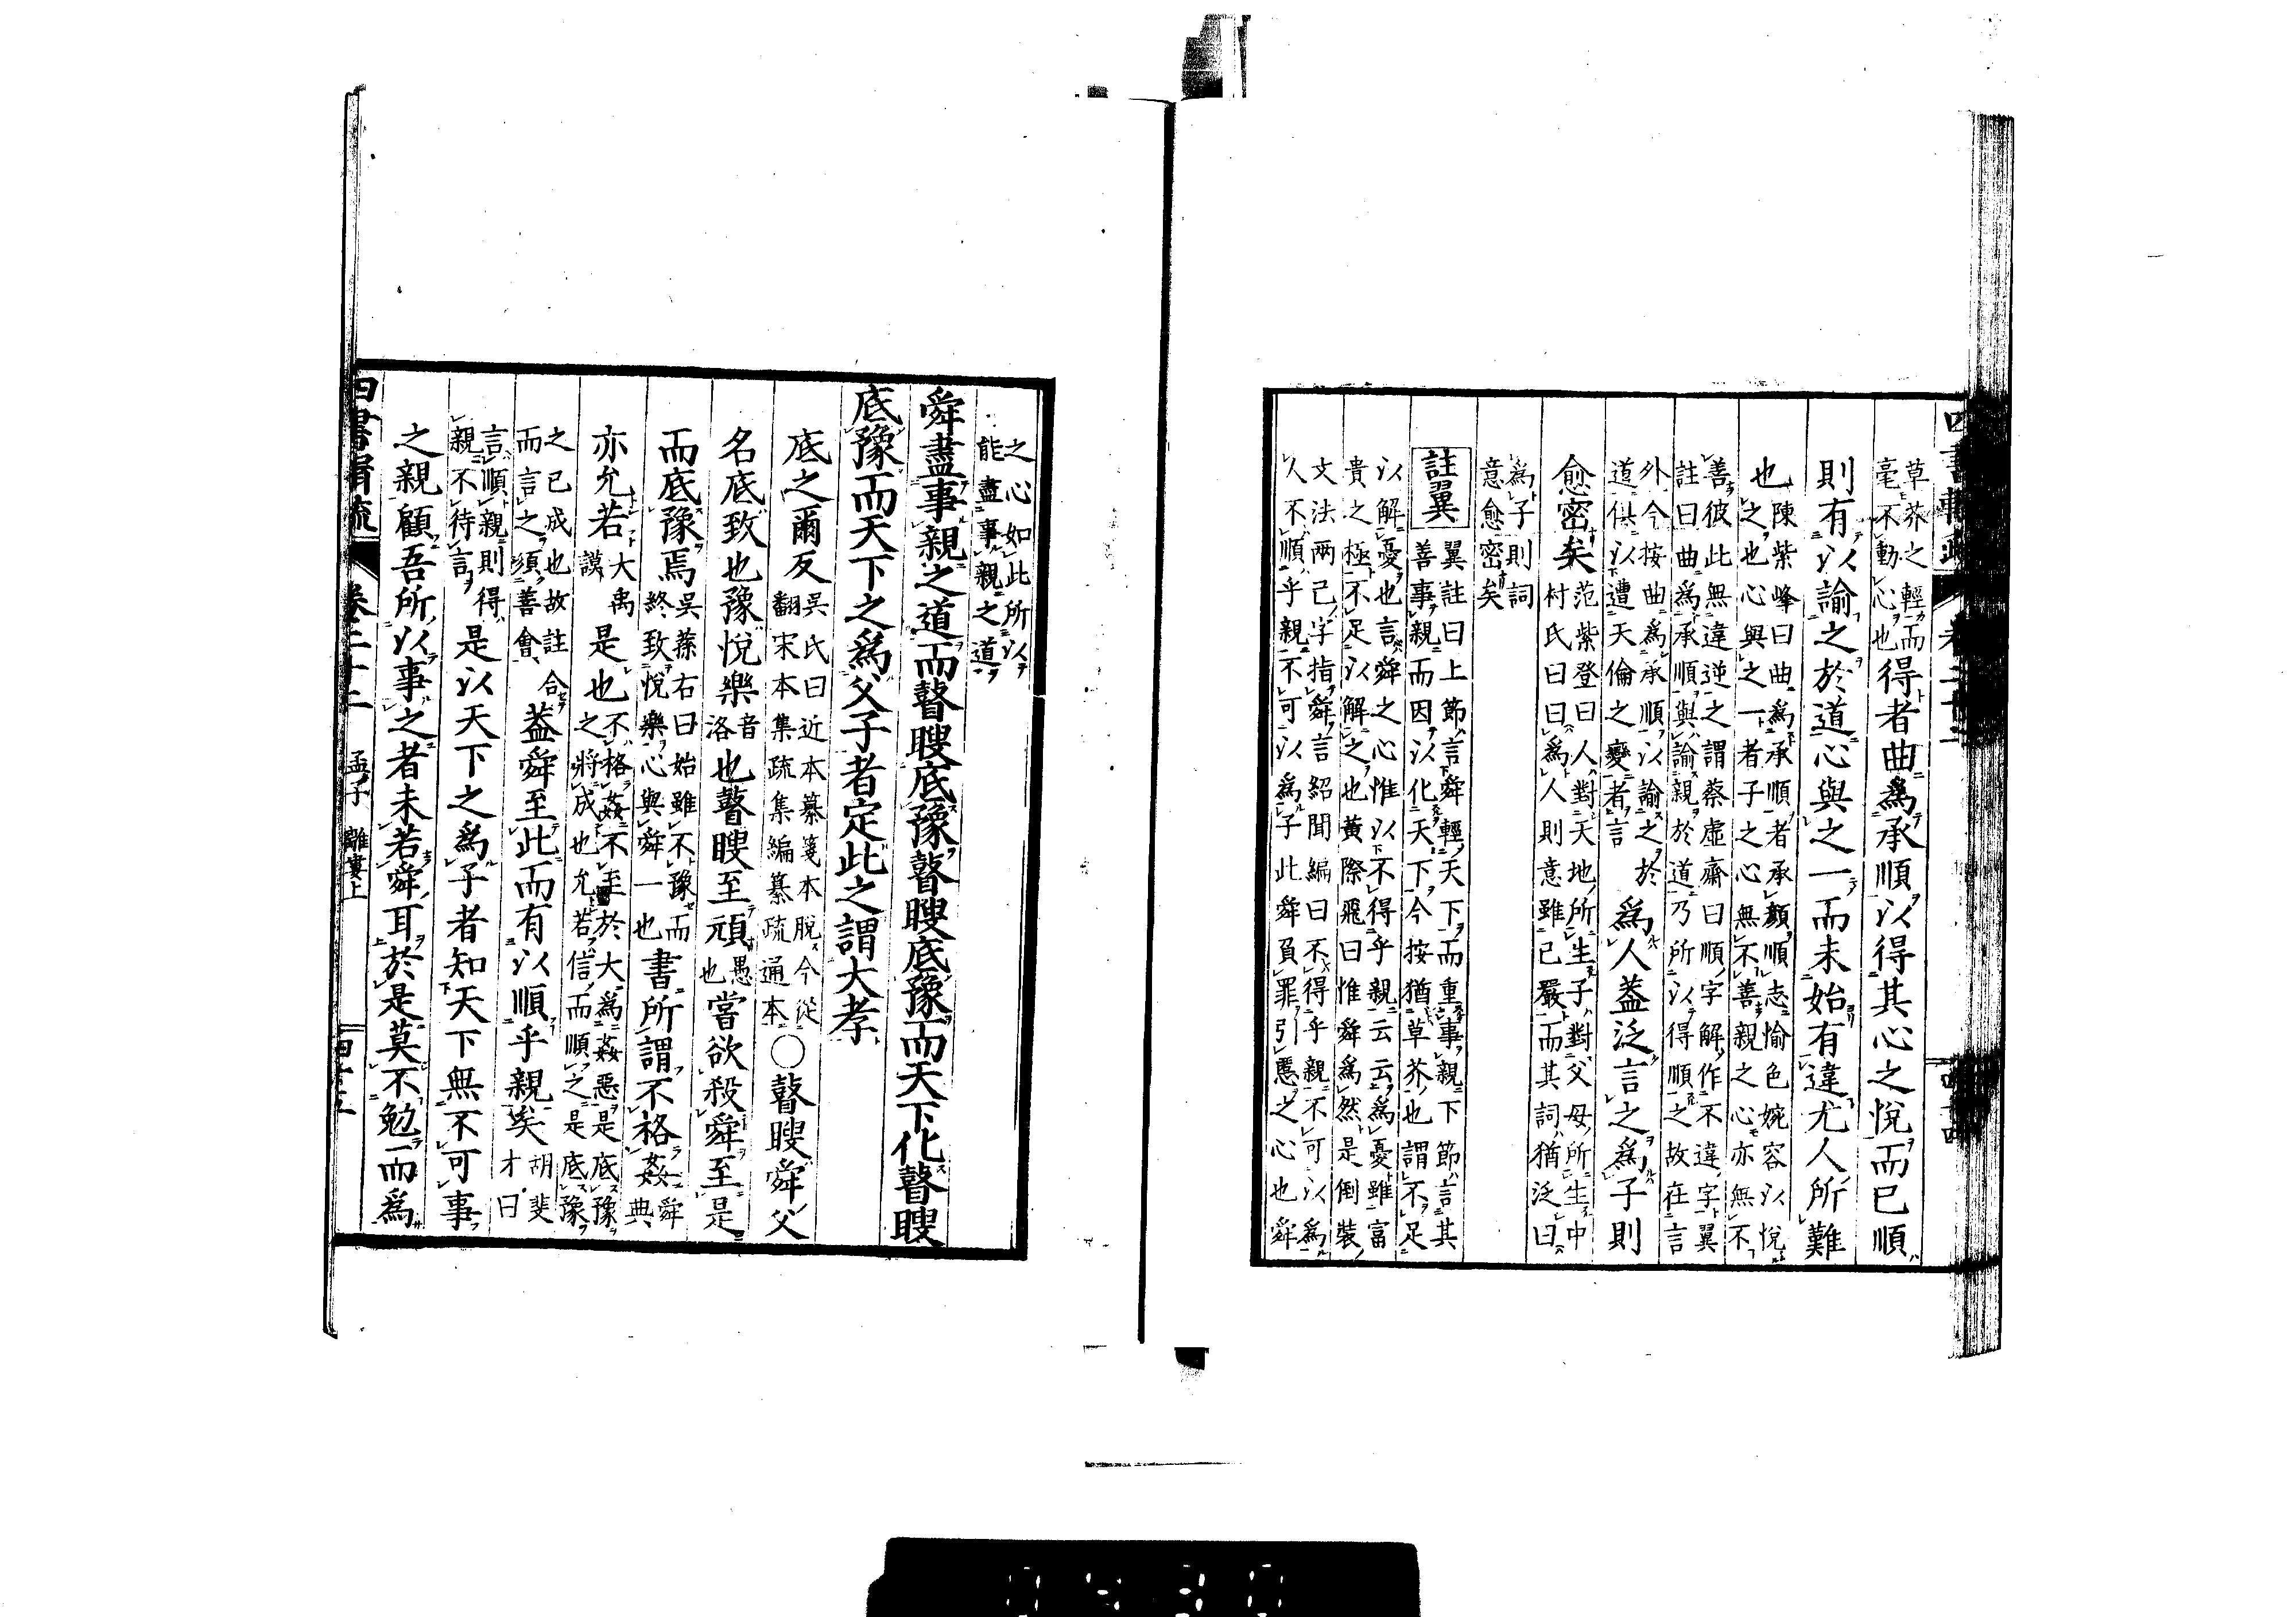 四書輯疏 卷二十二 四十四
草芥之輕而毫不動心也得者曲爲承順以得其心之悅而已順
則有以諭之於道心與之一而未始有違尤人所難
也陳紫峰曰曲爲承順者承顏順志愉色婉容以悅之也心與之一者子之心無不善親之心亦無不
善彼此無違逆之謂蔡虛齋曰順字解作不違字翼註曰曲爲承順與諭親於道乃所以得順之故在言
外今按曲爲承順以諭之於道供以遭天倫之變者言爲人蓋泛言之爲子則
愈密矣范紫登曰人對天地所生子對父母所生中村氏曰曰爲人則意雖已嚴而其詞猶泛曰
爲子則詞意愈密矣
註翼翼註曰上節言舜輕天下而重事親下節言其善事親而因以化天下今按猶草芥也謂不足
以解憂也言舜之心惟以不得乎親云云爲憂雖富貴之極不足以解之也黃際飛曰惟舜爲然是倒裝
文法两己字指舜言紹聞編曰不得乎親不可以爲人不順乎親不可以爲子此舜負罪引慝之心也舜
之心如此所以能盡事親之道
舜盡事親之道而瞽瞍底豫瞽瞍底豫而天下化瞽瞍
底豫而天下之爲父子者定此之謂大孝
底之爾反吳氏曰近本纂箋本脫今從翻宋本集疏集編纂疏通本○瞽瞍舜父
名底致也豫悅樂音洛也瞽瞍至頑愚也嘗欲殺舜至是
而底豫焉吳蓀右曰始雖不豫而終致悅樂心與舜一也書所謂不格姦舜典
亦允若大禹謨是也不格姦不至於大爲姦惡是底豫之將成也允若信而順之是底豫
之已成也故註合而言之須善會蓋舜至此而有以順乎親矣胡斐才曰
言順親則得親不待言是以天下之爲子者知天下無不可事
之親顧吾所以事之者未若舜耳於是莫不勉而爲
四書輯疏 卷二十二 孟子 離婁上 四十五